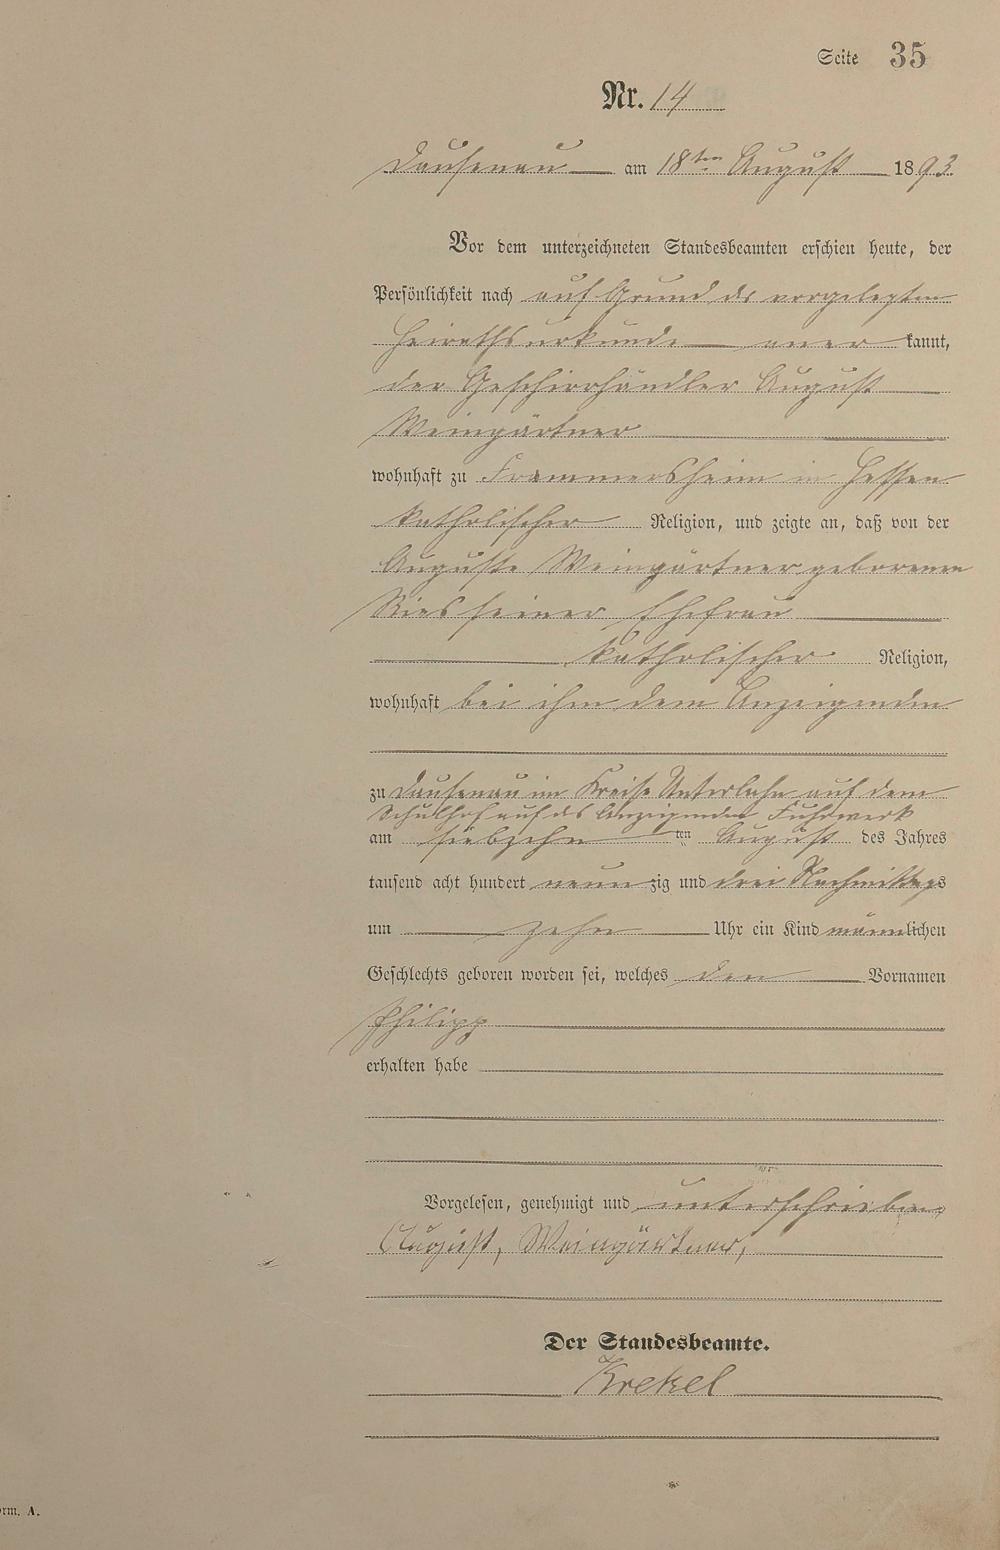 Seite 35
Nr. 14
Dausenau am 18ten August 1893.
Vor dem unterzeichneten Standesbeamten erschien heute, der
Persönlichkeit nach auf Grund des vorgelegten
Heirathsurkunde anerkannt,
der Geschirrhändler August
Weingärtner
wohnhaft zu Frammersheim in Hessen
katholischer Religion, und zeigte an, daß von der
Auguste Weingärtner geborenen
Ries seiner Ehefrau
katholischer Religion,
wohnhaft bei ihm dem Anzeigenden
zu Dausenau im Kreise Unterlahn auf dem
Schulhof auf des Anzeigenden Fuhrwerk
am siebzehn ten August des Jahres
tausend acht hundert neunzig und drei Nachmittags
um zehn Uhr ein Kind männlichen
Geschlechts geboren worden sei, welches den Vornamen
Philipp
erhalten habe
Vorgelesen, genehmigt und unterschrieben
August, Weingärtner,
Der Standesbeamte.
Krekel
orm. A.